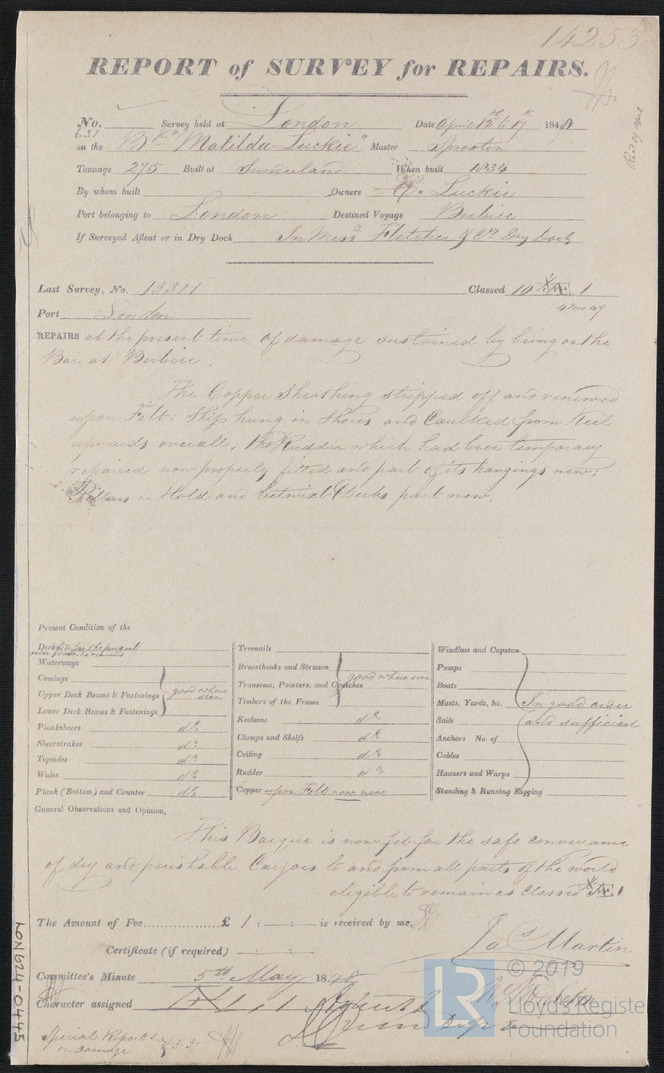 14253
REPORT of SURVEY for REPAIRS.
No. 631 Survey held at London Date April 12th to 17th 1848
on the Bk "Matilda Luckie" Master Sproston
Tonnage 275 Built at Sunderland When built 1834
By whom built Owners Luckie
Port belonging to London Destined Voyage Berbice
If Surveyed Afloat or in Dry Dock In Messrs Fletcher & Co Dry Dock
Last Survey, No. 13301 Classed 10 A 1
Port London
REPAIRS at the present time of damage sustained by being on the
Bar at Berbice.
The Copper Sheathing stripped off and renewed
upon Felt; Ship hung in Shores and Caulked from Keel
upwards overall, the Rudder which had been temporary
repaired now properly fitted and part of its hangings new;
Pillars in Hold and betwixt Decks part new.
Present Condition of the
Decks fit for the present
Waterways
Comings
Upper Deck Beams & Fastenings good where seen
Lower Deck Beams & Fastenings
Planksheers do
Sheerstrakes do
Topsides do
Wales do
Plank (Bottom) and Counter do
Treenails
Breasthooks and Stemson
Transoms, Pointers, and Crutches good where seen
Timbers of the Frame
Keelsons do
Clamps and Shelfs do
Ceiling do
Rudder do
Copper upon Felt now new
Windlass and Capston
Pumps
Boats
Masts, Yards, &c. In good order
Sails and sufficient
Anchors No. of
Cables
Hawsers and Warps
Standing & Running Rigging
General Observations and Opinion,
This Barque is now fit for the safe conveyance
of dry and perishable Cargoes to and from all parts of the world
eligible to remain as Classed A 1
The Amount of Fee £ 1 : - : - is received by me,
Jas Martin
Certificate (if required)
Committee's Minute 5th May 1848
Character assigned
Special Report
on Damage
LON624-0445
© 2019
LR
Lloyd's Register
Foundation